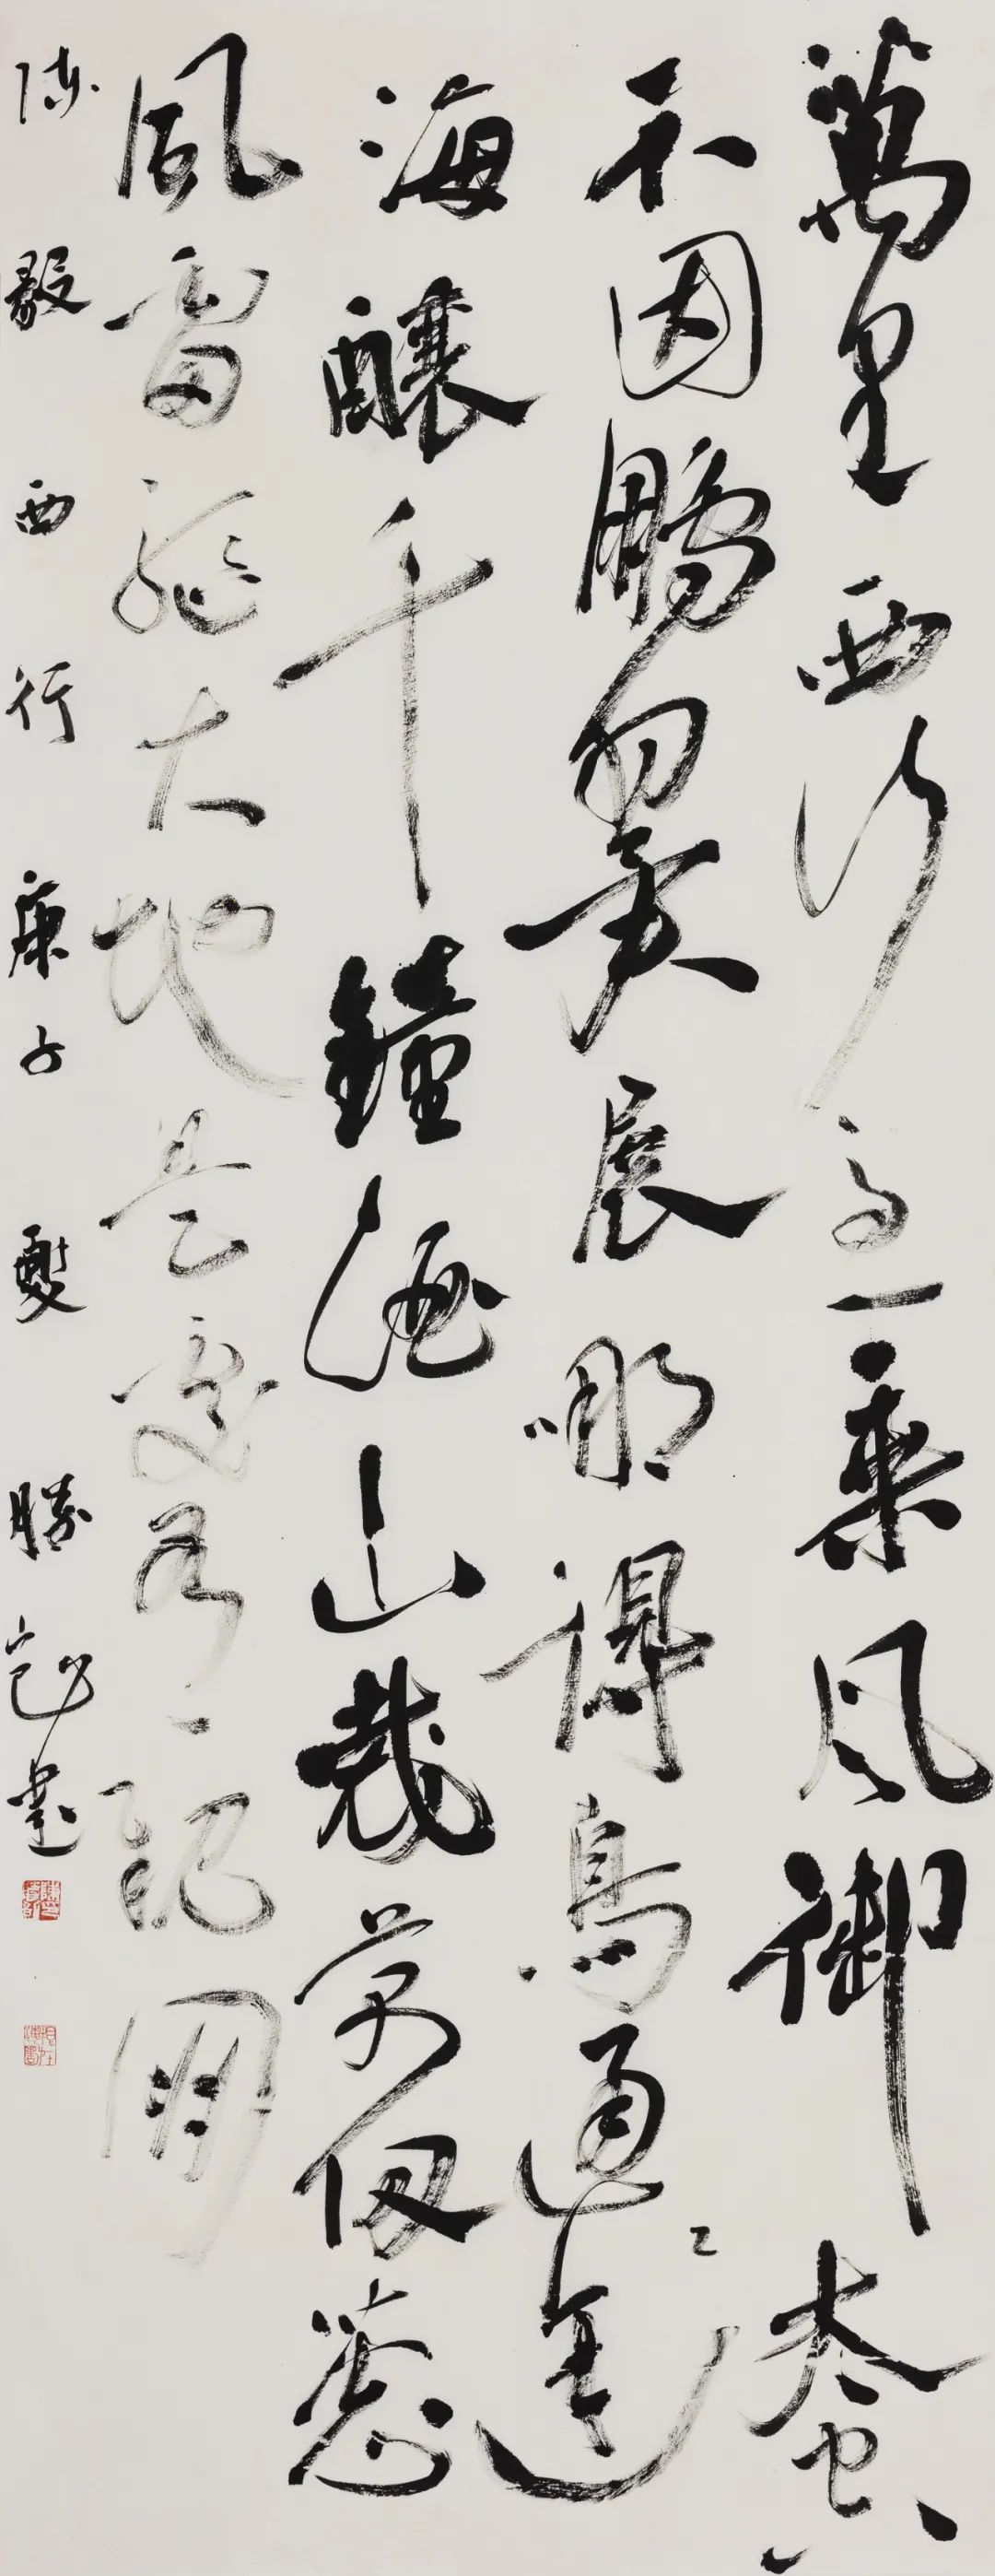 萬里西行急乘风御太空
不因鵬翼展哪得鳥通途
海釀千鐘酒山栽萬仞蔥
風雷驅大地是處有親朋
陳毅西行 庚子夏 勝